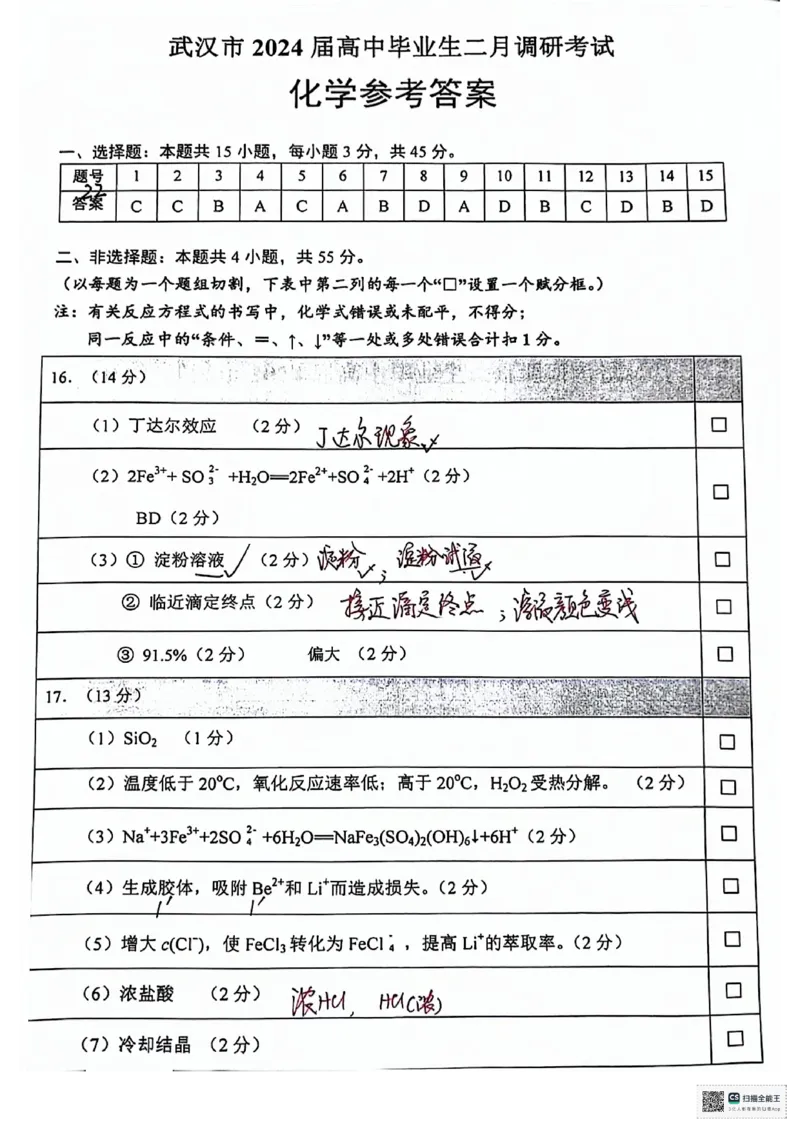 武汉市 2024 届高中毕业生二月调研考试
化学参考答案
一、选择题：本题共 15 小题，每小题 3 分，共 45 分。
题号 1 2 3 4 5 6 7 8 9 10 11 12 13 14 15
22
答案 C C B A C A B D A D B C D B D
二、非选择题：本题共 4 小题，共 55 分。
（以每题为一个题组切割，下表中第二列的每一个“□”设置一个赋分框。）
注：有关反应方程式的书写中，化学式错误或未配平，不得分；
同一反应中的“条件、═、↑、↓”等一处或多处错误合计扣 1 分。
16.（14 分）
（1）丁达尔效应 （2 分） 丁达尔现象✓ □
（2）2Fe³⁺+ SO₃²⁻ +H₂O═2Fe²⁺+SO₄²⁻ +2H⁺（2 分） □
BD（2 分）
（3）① 淀粉溶液 ✓ （2 分） 淀粉✓；淀粉试液✓ □
② 临近滴定终点（2 分） 接近滴定终点；溶液颜色变浅 □
③ 91.5%（2 分） 偏大 （2 分） □
17.（13 分）
（1）SiO₂ （1 分） □
（2）温度低于 20℃，氧化反应速率低；高于 20℃，H₂O₂ 受热分解。 （2 分） □
（3）Na⁺+3Fe³⁺+2SO₄²⁻ +6H₂O═NaFe₃(SO₄)₂(OH)₆↓+6H⁺（2 分） □
（4）生成胶体，吸附 Be²⁺和 Li⁺而造成损失。（2 分） □
（5）增大 c(Cl⁻)，使 FeCl₃ 转化为 FeCl₄⁻，提高 Li⁺的萃取率。（2 分） □
（6）浓盐酸 （2 分） 浓HCl， HCl(浓) □
（7）冷却结晶 （2 分） □
CS 扫描全能王
3亿人都在用的扫描App